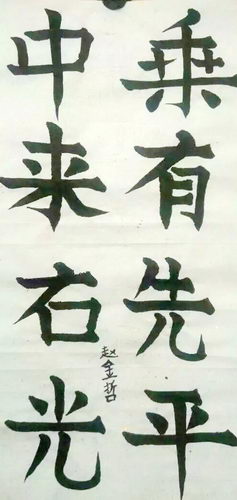 乘有先平
中来右光
赵金哲